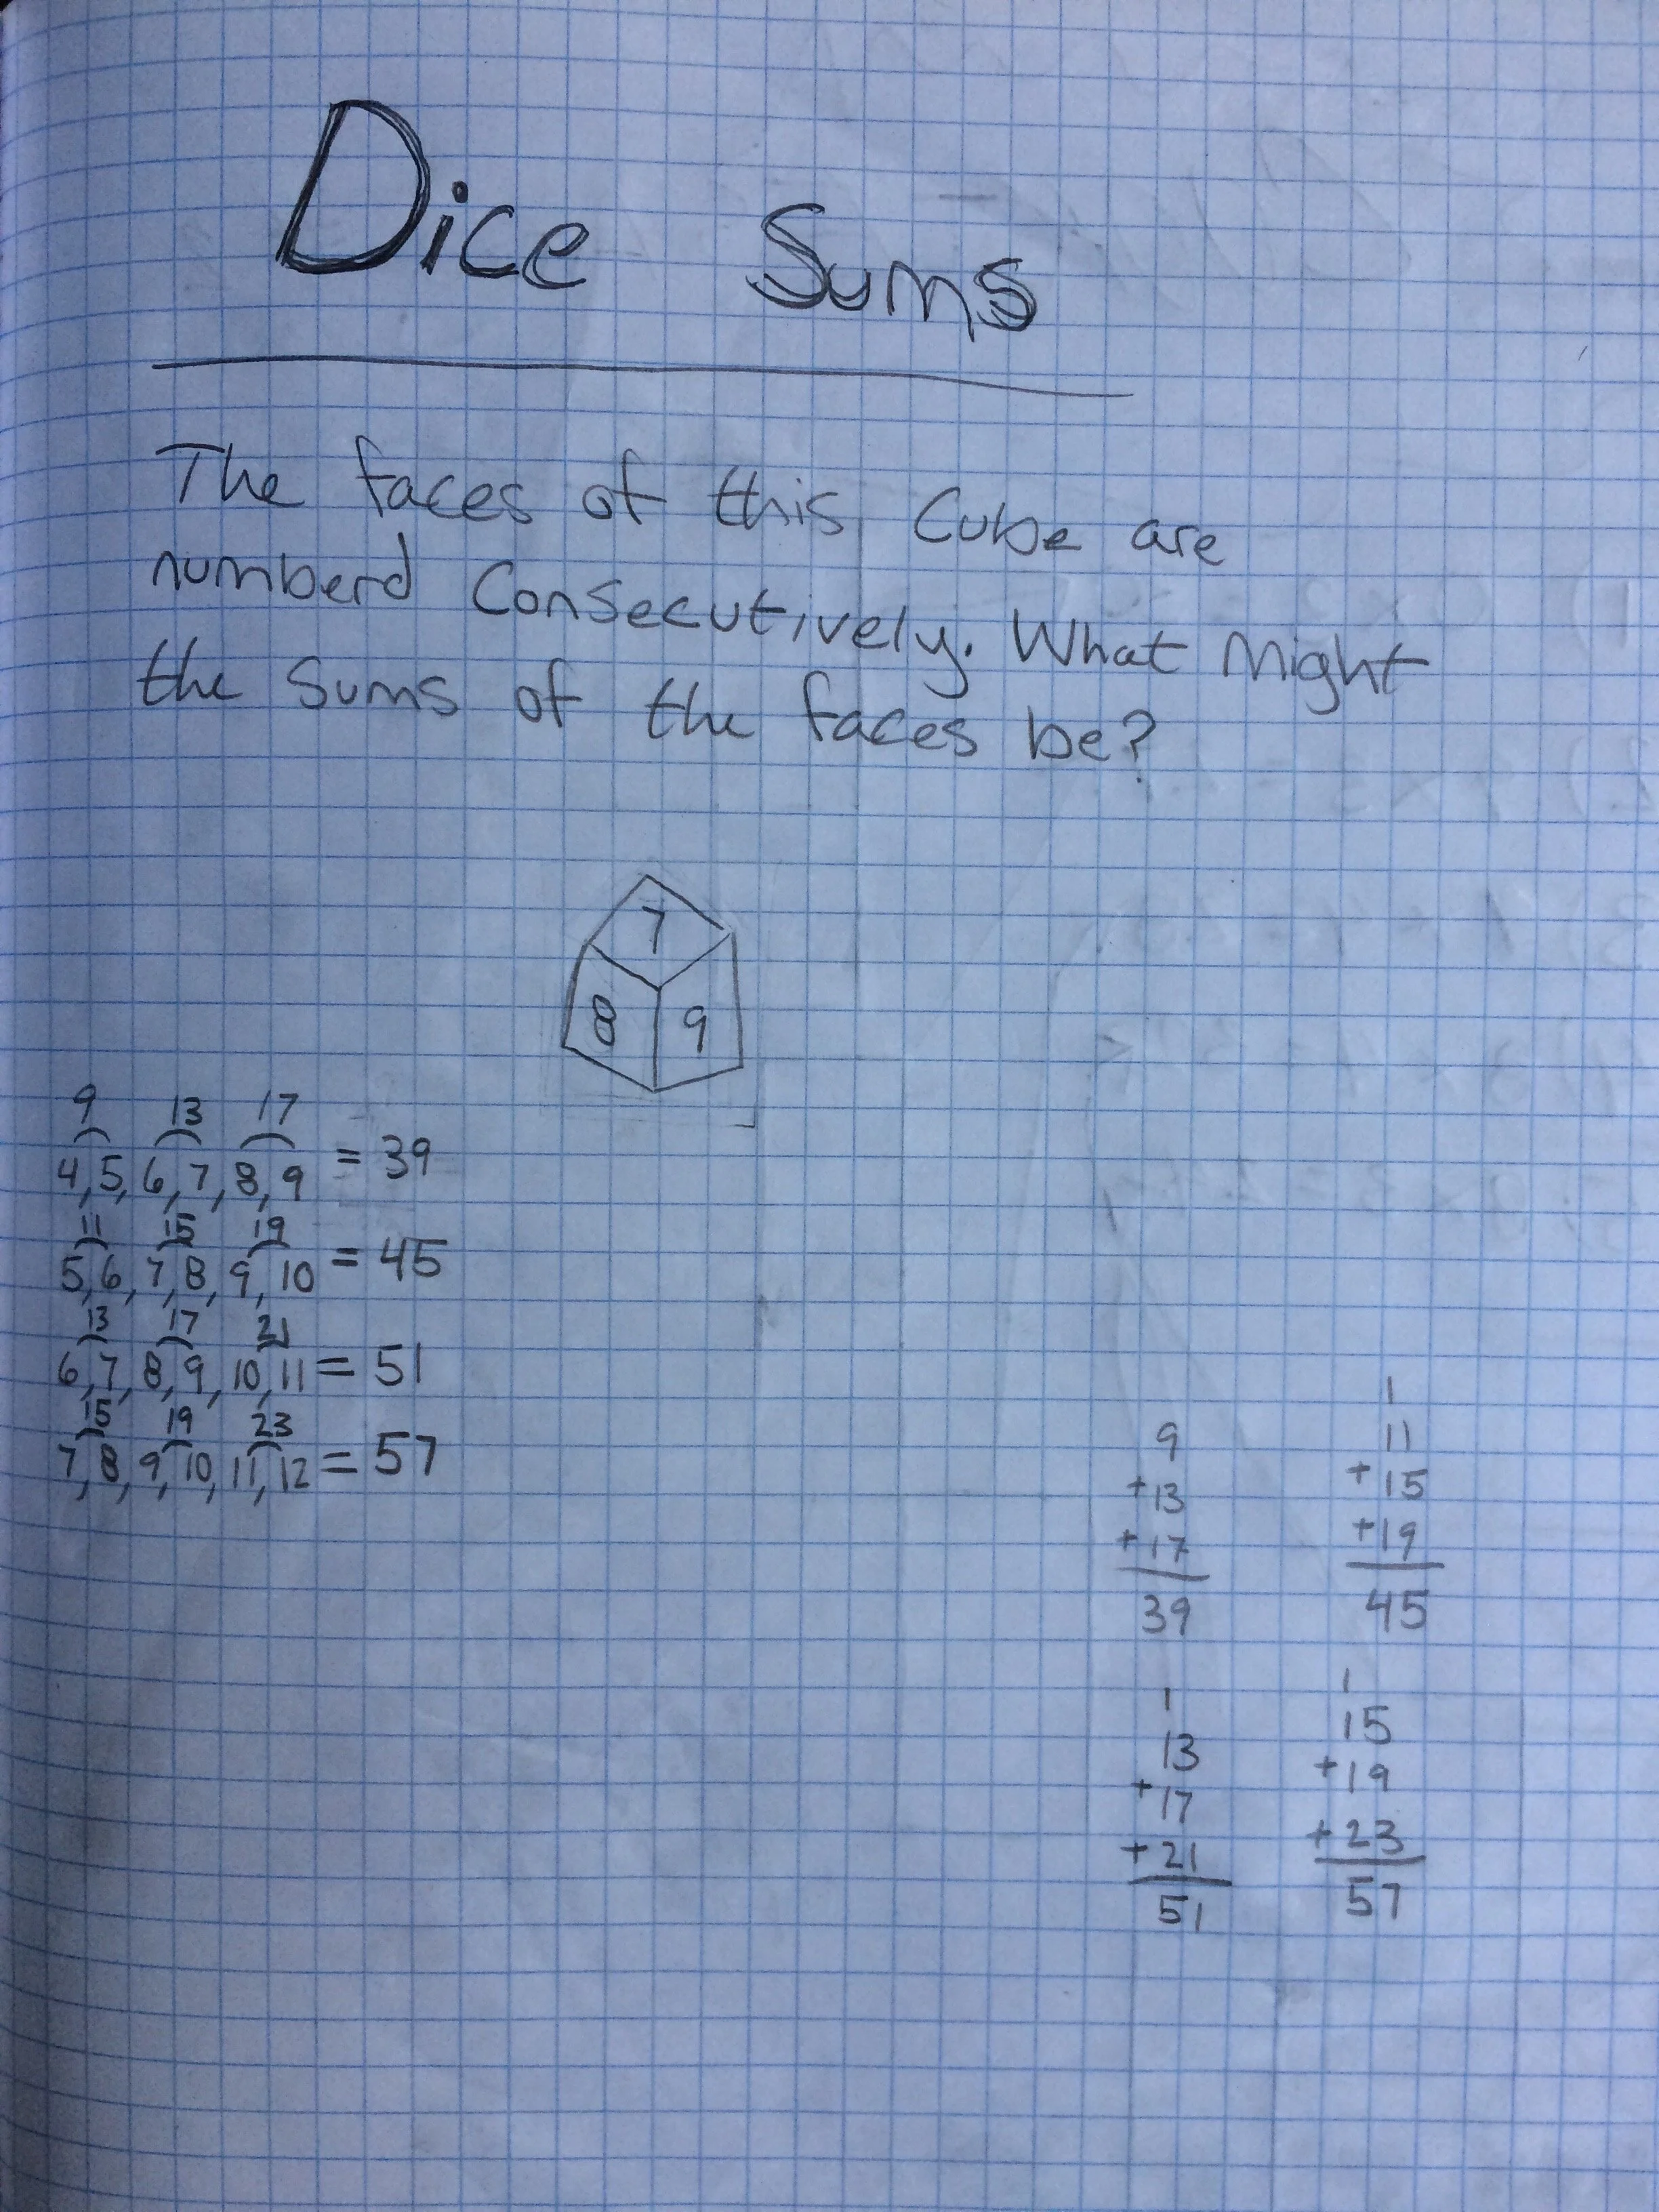 Dice Sums
The faces of this Cube are
numberd Consecutively. What Might
the Sums of the faces be?
7
8 9
9 13 17
4,5,6,7,8,9 = 39
11 15 19
5,6,7,8,9,10 = 45
13 17 21
6,7,8,9,10,11 = 51
15 19 23
7,8,9,10,11,12 = 57
9
+13
+17
39
1
11
+15
+19
45
1
13
+17
+21
51
1
15
+19
+23
57